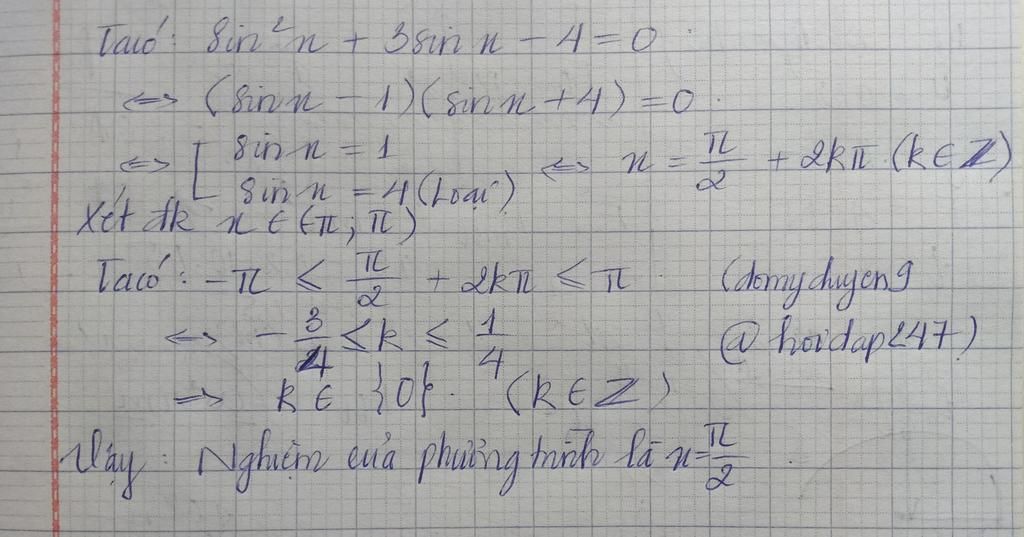 Ta có: sin²x + 3sin x - 4 = 0
⇔ (sin x - 1)(sin x + 4) = 0
⇔ [ sin x = 1
sin x = 4 (Loại) ⇔ x = π/2 + 2kπ (k ∈ Z)
Xét đk x ∈ (-π; π)
Ta có: -π ≤ π/2 + 2kπ ≤ π (domyduyen9
⇔ -3/4 ≤ k ≤ 1/4 @hoidap247)
⇒ k ∈ {0}. (k ∈ Z)
Vậy: Nghiệm của phương trình là x = π/2